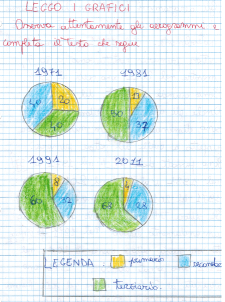 LEGGO I GRAFICI
Osserva attentamente gli aerogrammi e
completa il testo che segue
1971 1981
40 20 13
40 50 37
1991 2011
8
60 32 28
LEGENDA primario secondo
terziario.